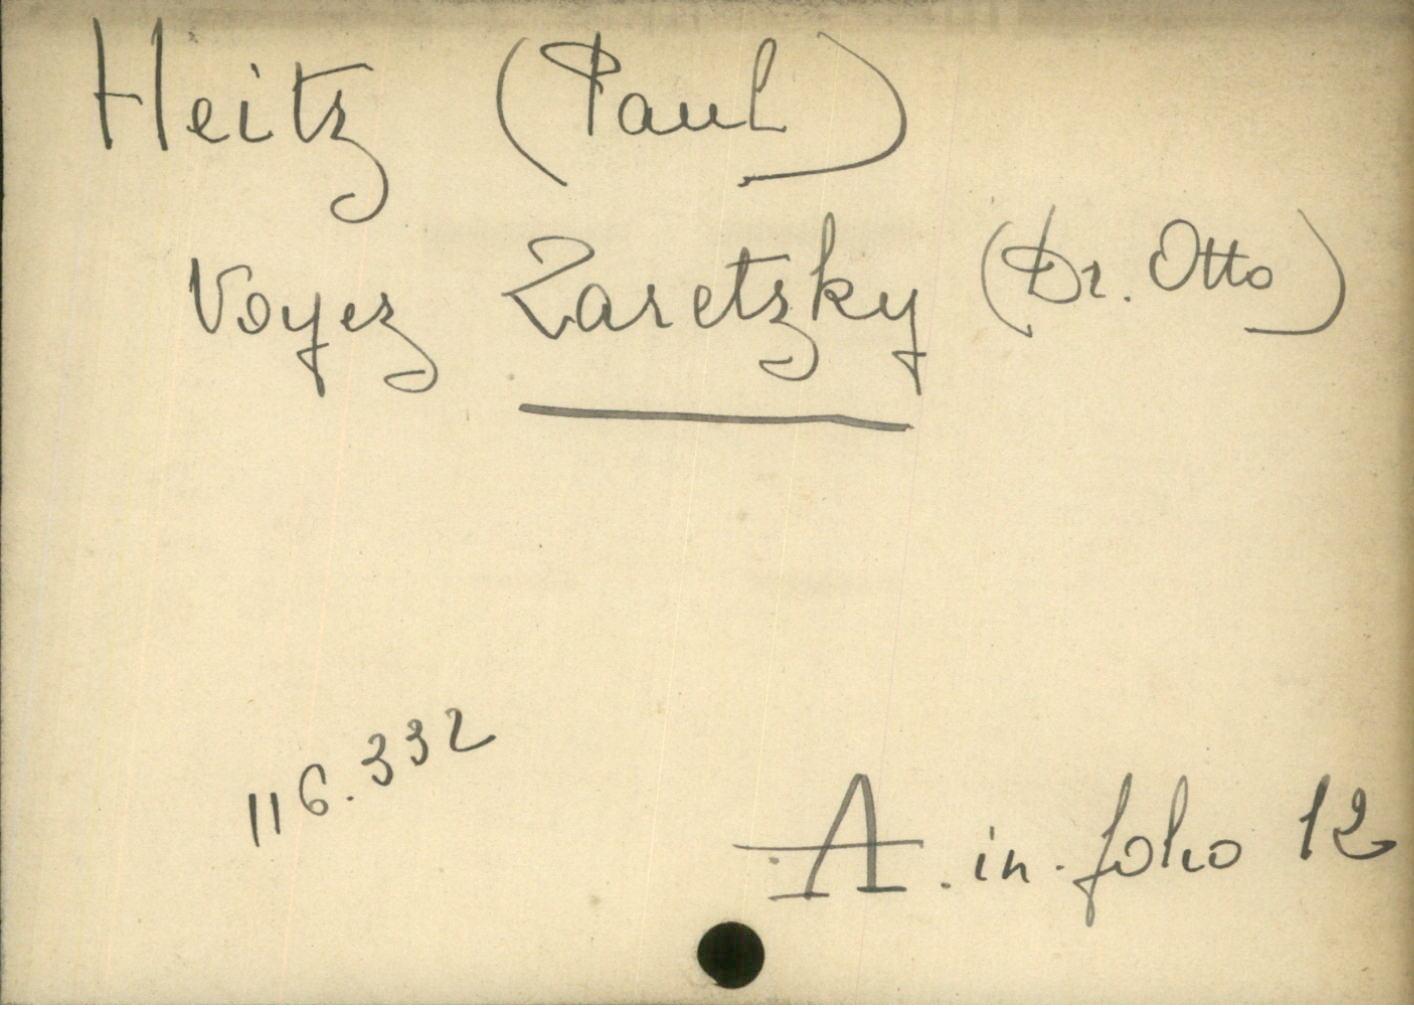 Heitz (Paul)
Voyez Zaretzky (Dr. Otto)
116.332
A. in-folio 12